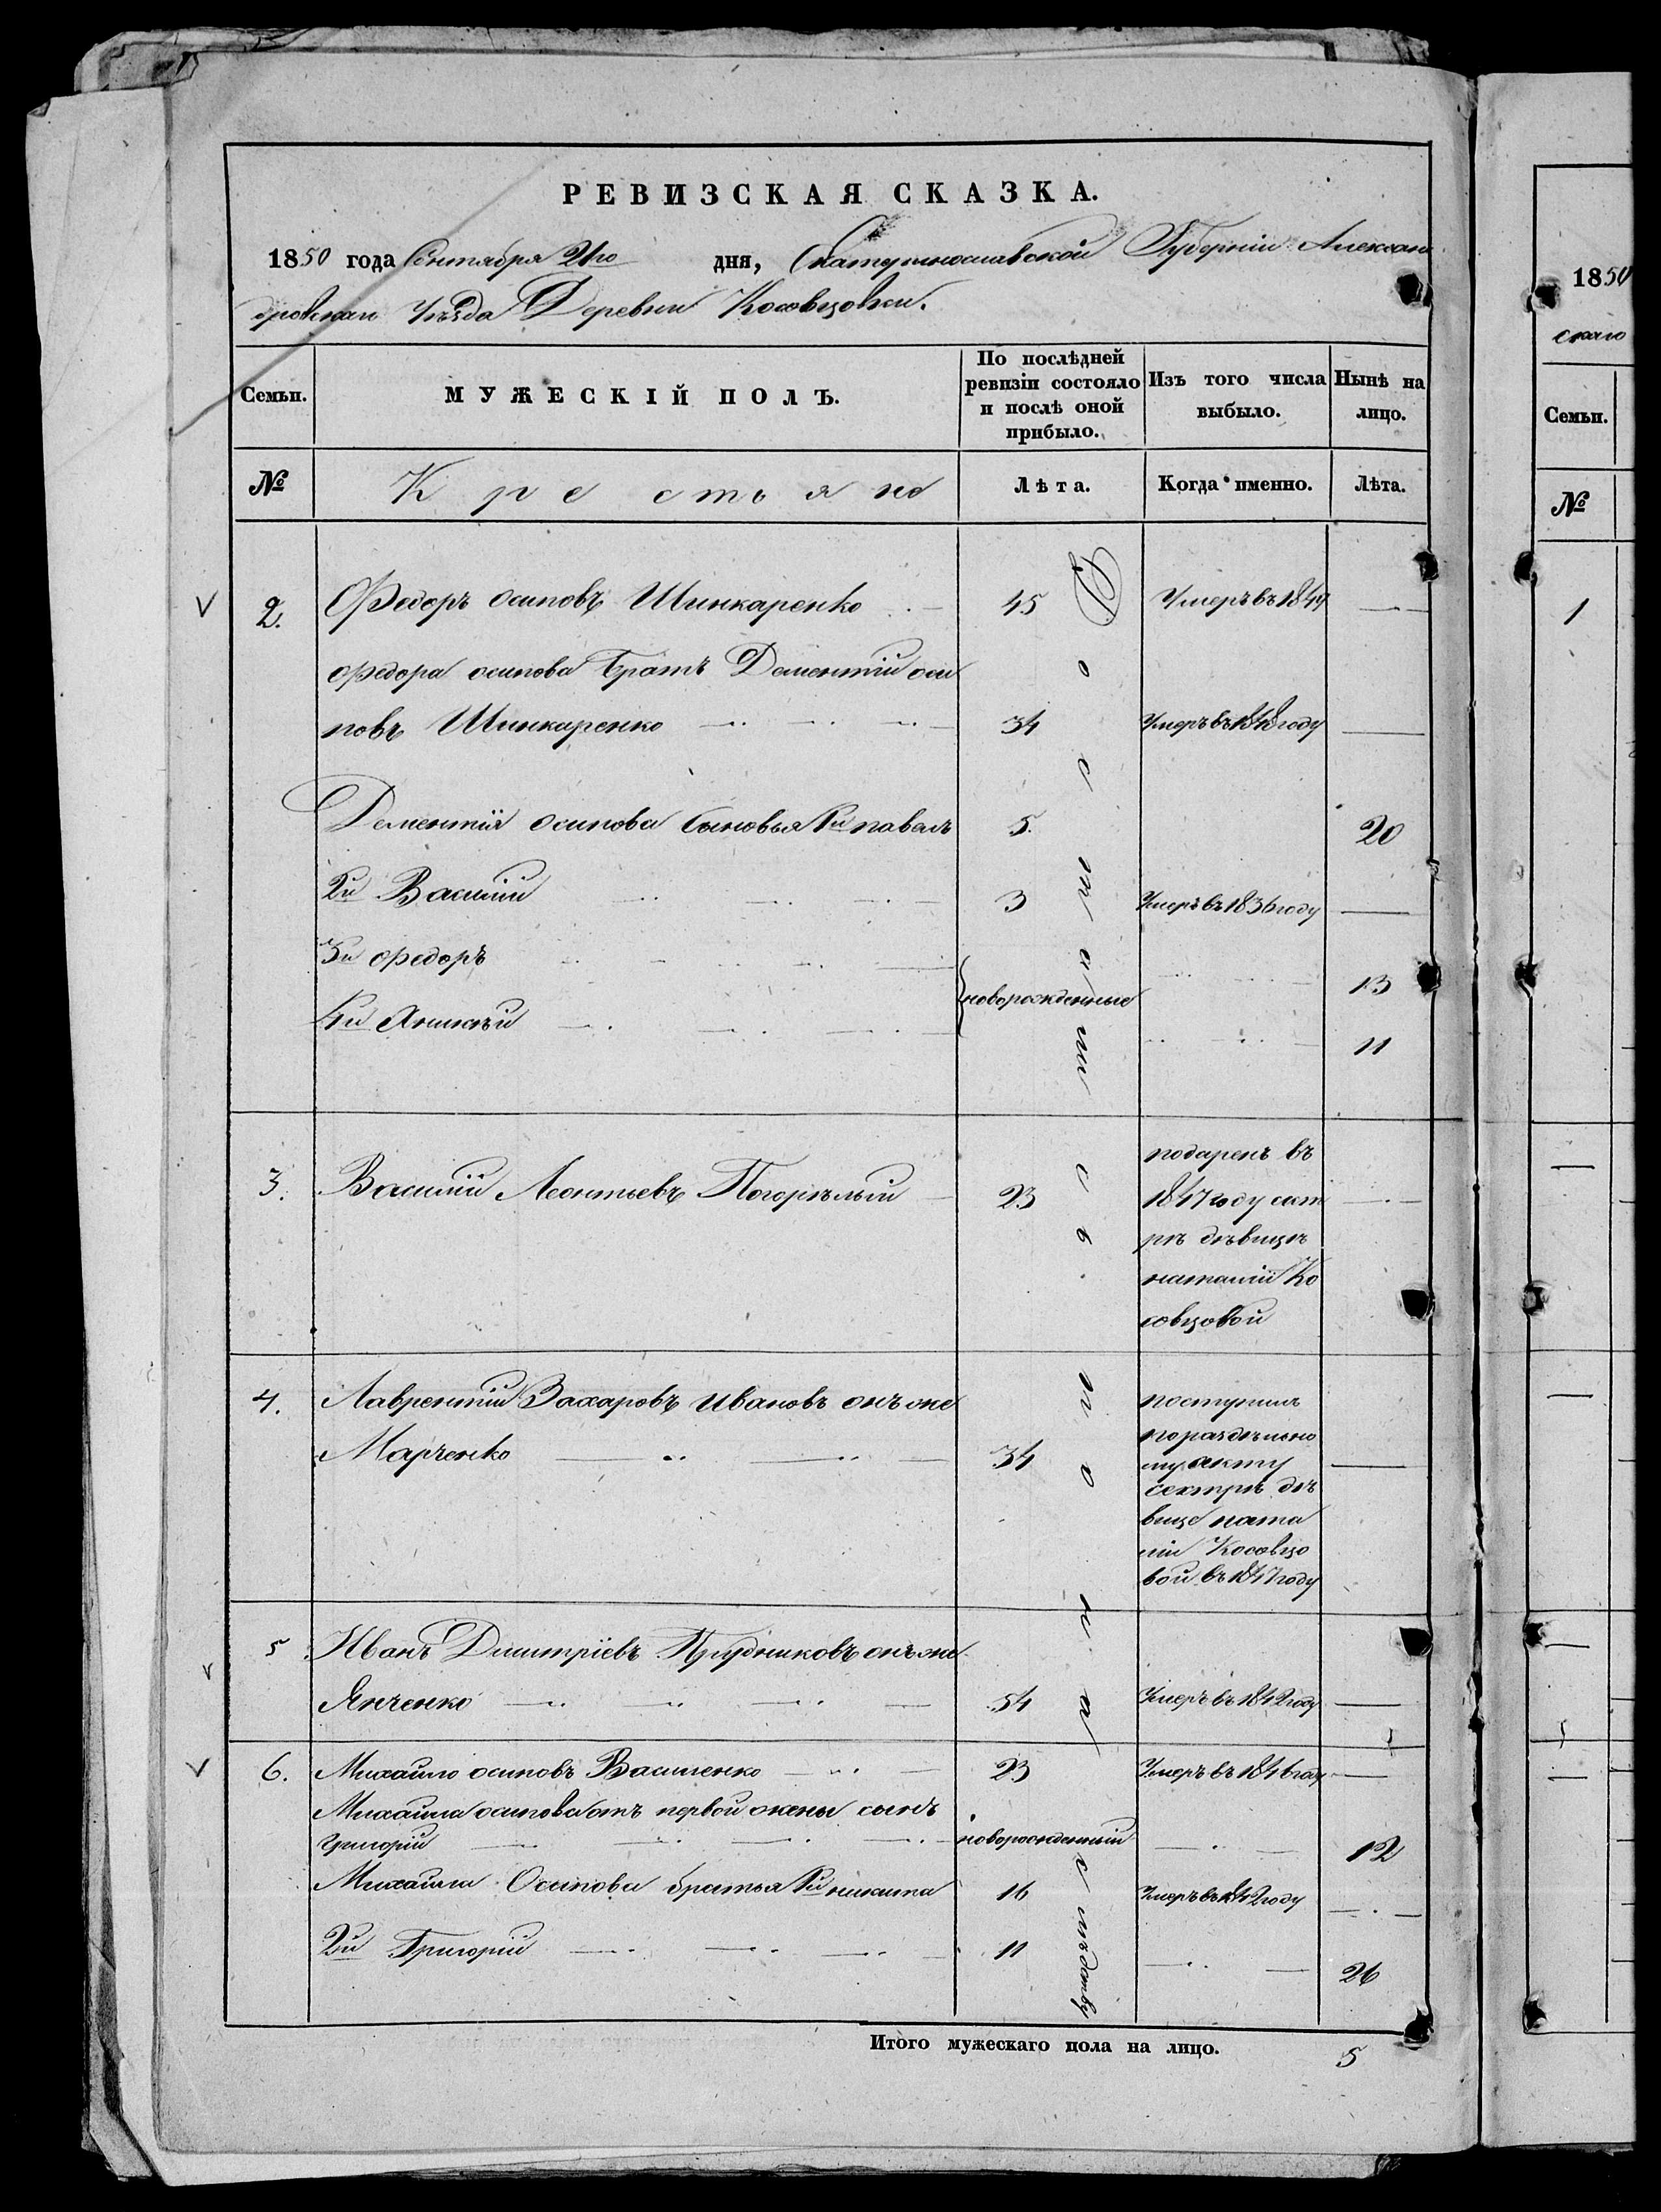 РЕВИЗСКАЯ СКАЗКА.
1850 года Сентября 2го дня, Екатеринославской Губерніи Алексан
дровскаго Уѣзда Деревни Косовцовки.
Семьи. МУЖЕСКІЙ ПОЛЪ. По послѣдней ревизіи состояло и послѣ оной прибыло. Изъ того числа выбыло. Нынѣ на лицо.
№ Крестьяне Лѣта. Когда именно. Лѣта.
2. Федоръ осиповъ Шинкаренко 45 Умеръ въ 1849
федора осипова братъ Дементій оси
повъ Шинкаренко 34 Умеръ въ 1848 году
Дементія осипова сыновья 1й павелъ 5. 20
2й Василій 3 Умеръ въ 1836 году
3й федоръ 13
новорожденные
4й Аникѣй 11
3. Василій Леонтьевъ Погорѣлый 23 подаренъ въ
1847 году сест
рѣ дѣвицѣ
наталіи Ко
совцовой
4. Лаврентій Захаровъ Ивановъ онъ же
Марченко 34 поступилъ
пораздѣльно
му акту
сестрѣ дѣ
вице ната
ліи Косовцо
вой въ 1847 году
5 Иванъ Дмитріевъ Прудниковъ онъ же
Янченко 54 Умеръ въ 1842 году
6. Михайло осиповъ Василенко 23 Умеръ въ 1846 году
Михайла осипова отъ первой жены сынъ
григорій новорожденный 12
Михайла Осипова братья 1й никита 16 Умеръ въ 1842 году
2й Григорій 11 26
Итого мужескаго пола на лицо. 5
1850
скаго
Семьи.
№
1